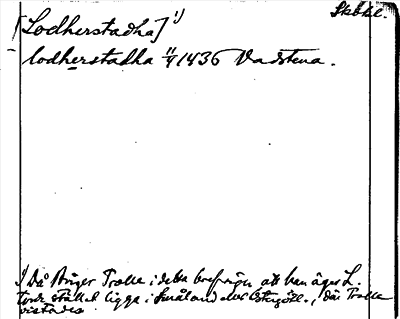 Skbke.
[Lodherstadha] 1)
lodherstadha 11/4 1436 Vadstena.
1) Då Birger Trolle i detta bref säger att han äger L.
torde stället ligga i Småland eller Östergötl., där Trolle
vistades